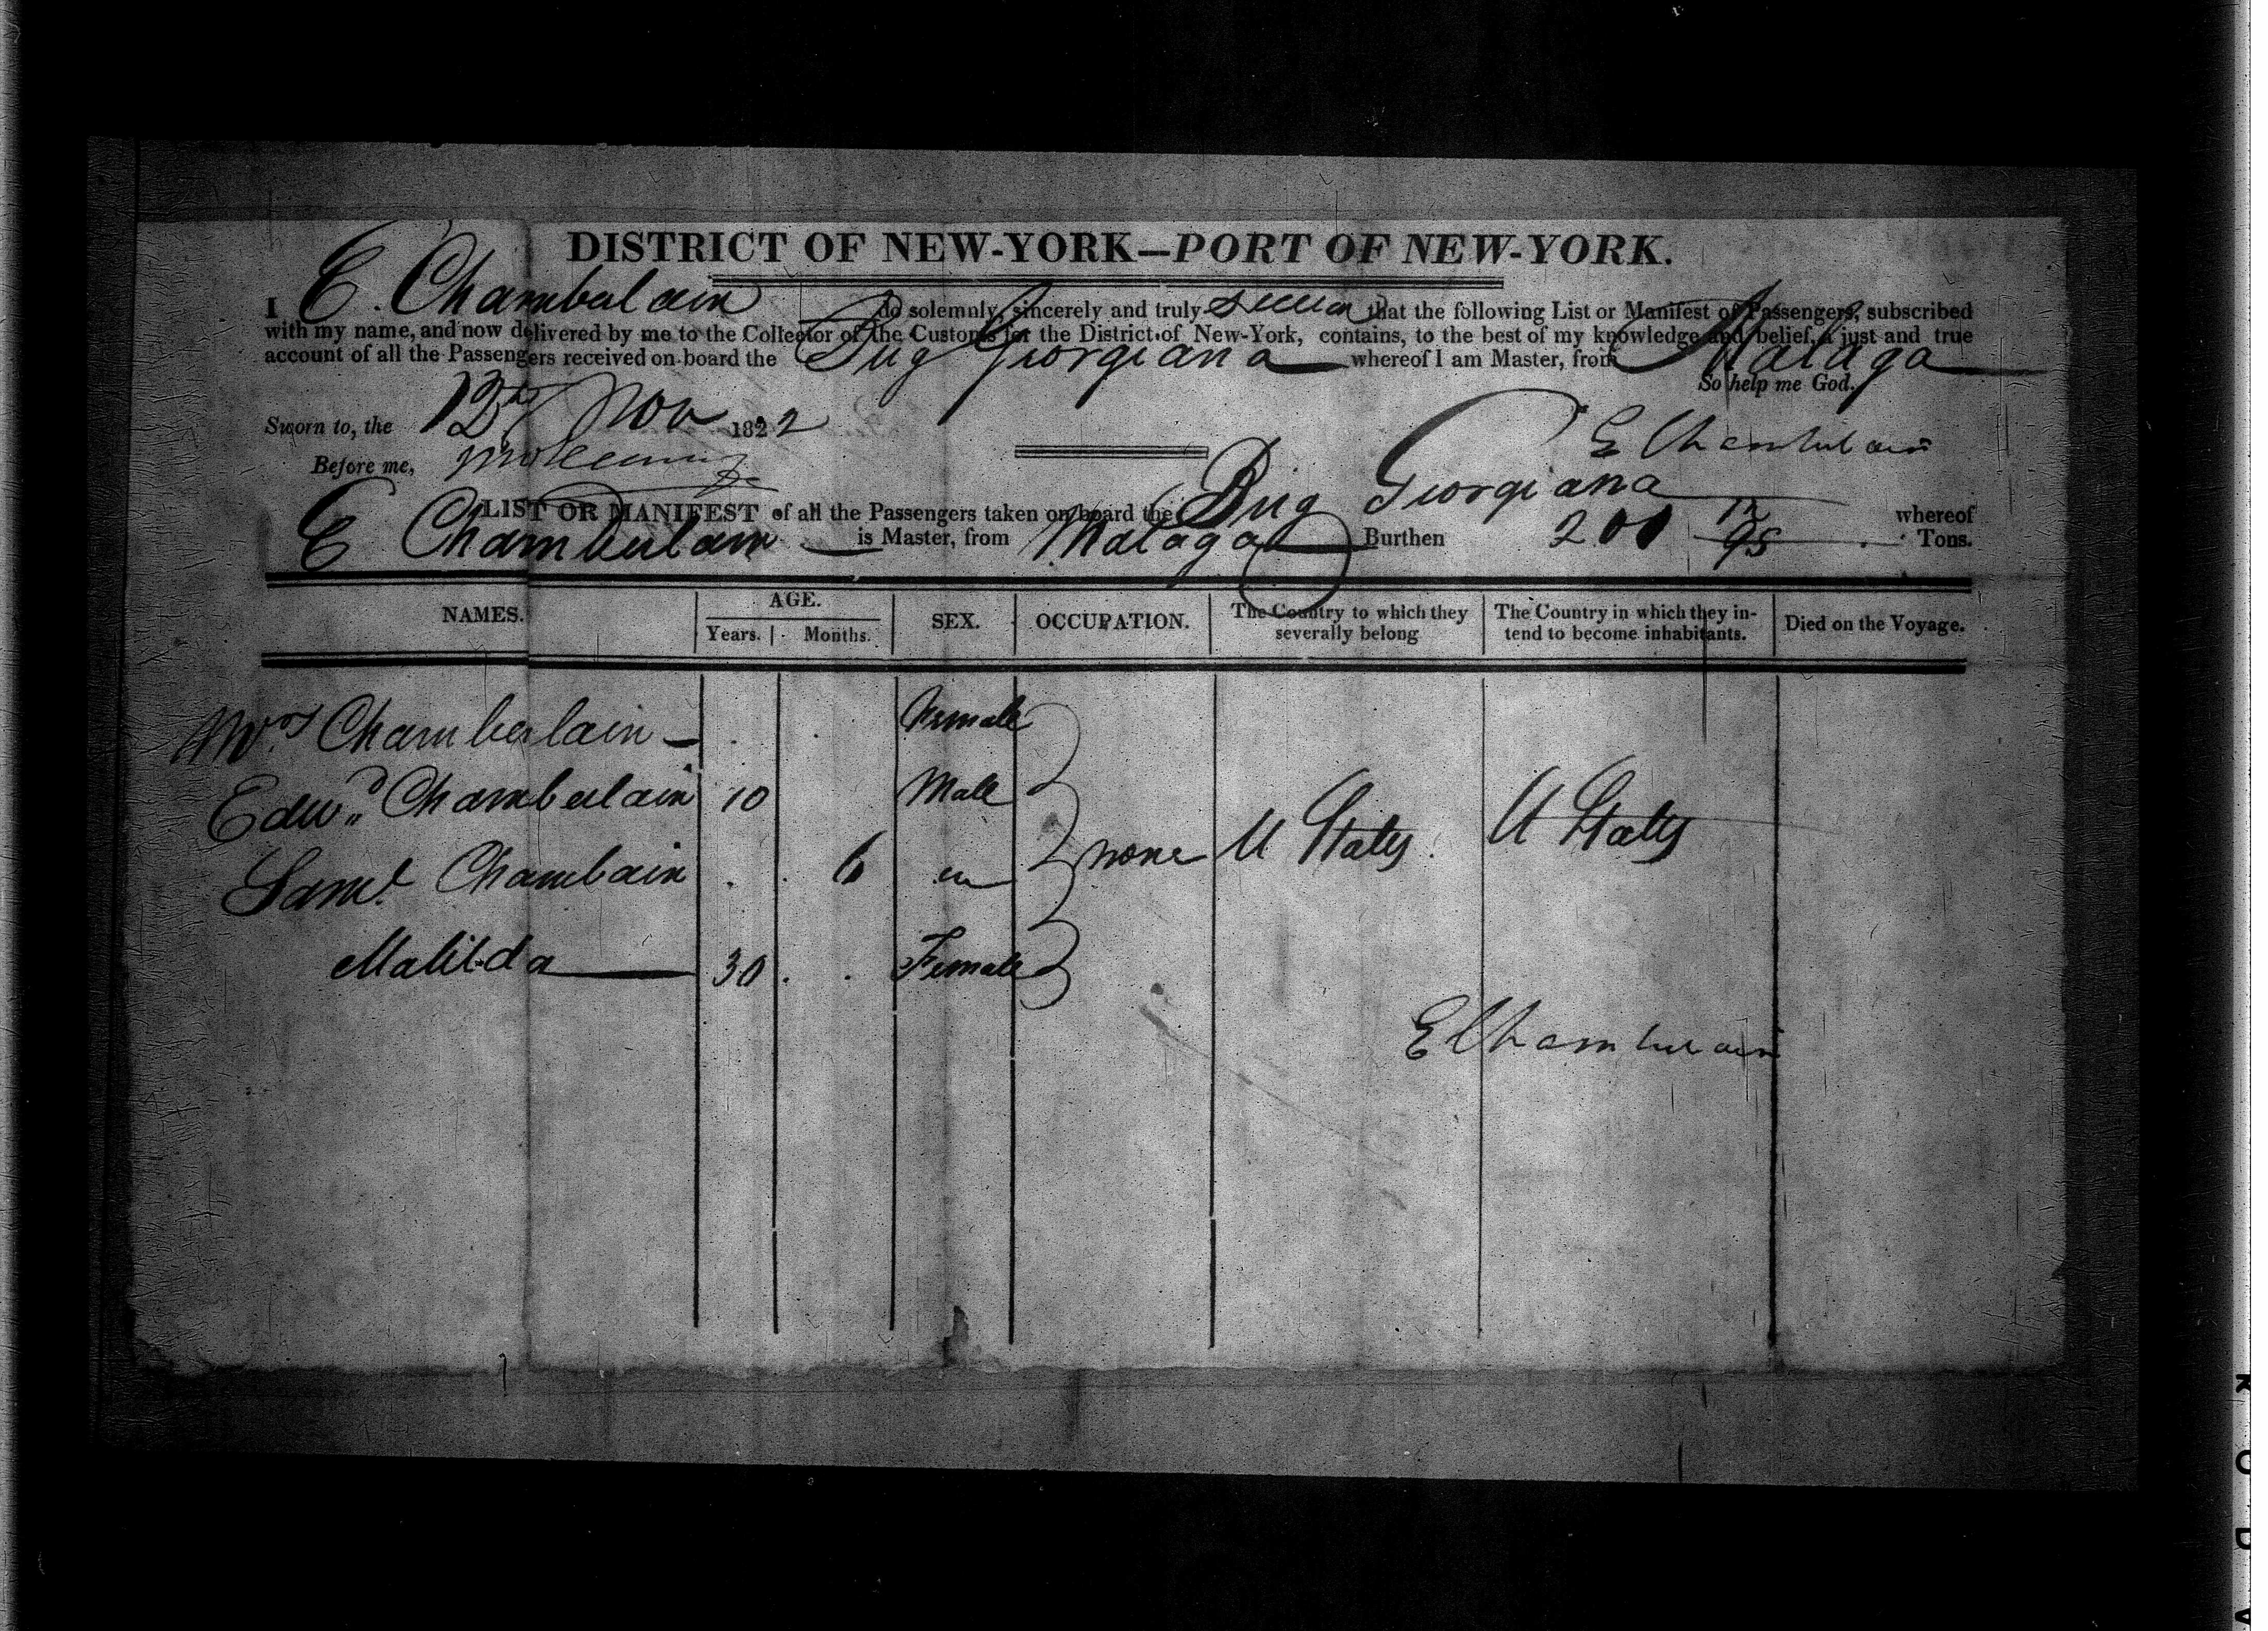 DISTRICT OF NEW-YORK—PORT OF NEW-YORK.
I E. Chamberlain do solemnly, sincerely and truly swear that the following List or Manifest of Passengers, subscribed
with my name, and now delivered by me to the Collector of the Customs for the District of New-York, contains, to the best of my knowledge and belief, a just and true
account of all the Passengers received on board the Brig Georgiana whereof I am Master, from Malaga
So help me God.
Sworn to, the 12th Nov 1822
E Chamberlain
Before me,
LIST OR MANIFEST of all the Passengers taken on board the Brig Georgiana whereof
E Chamberlain is Master, from Malaga Burthen 200 /95 Tons.
NAMES. AGE. Years. Months. SEX. OCCUPATION. The Country to which they severally belong The Country in which they intend to become inhabitants. Died on the Voyage.
Mrs Chamberlain Female
Edwd Chamberlain 10 Male
Saml Chamblain 6 none U States U States
Matilda 30 Female
E Chamberlain
KODA